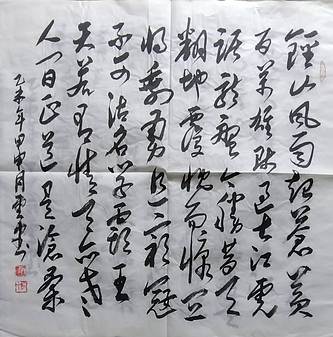 鍾山风雨起蒼黄
百万雄师过大江虎
踞龙盘今勝昔天
翻地覆慨而慷宜
将剩勇追穷寇
不可沽名学霸王
天若有情天亦老
人间正道是滄桑
乙未年甲申月